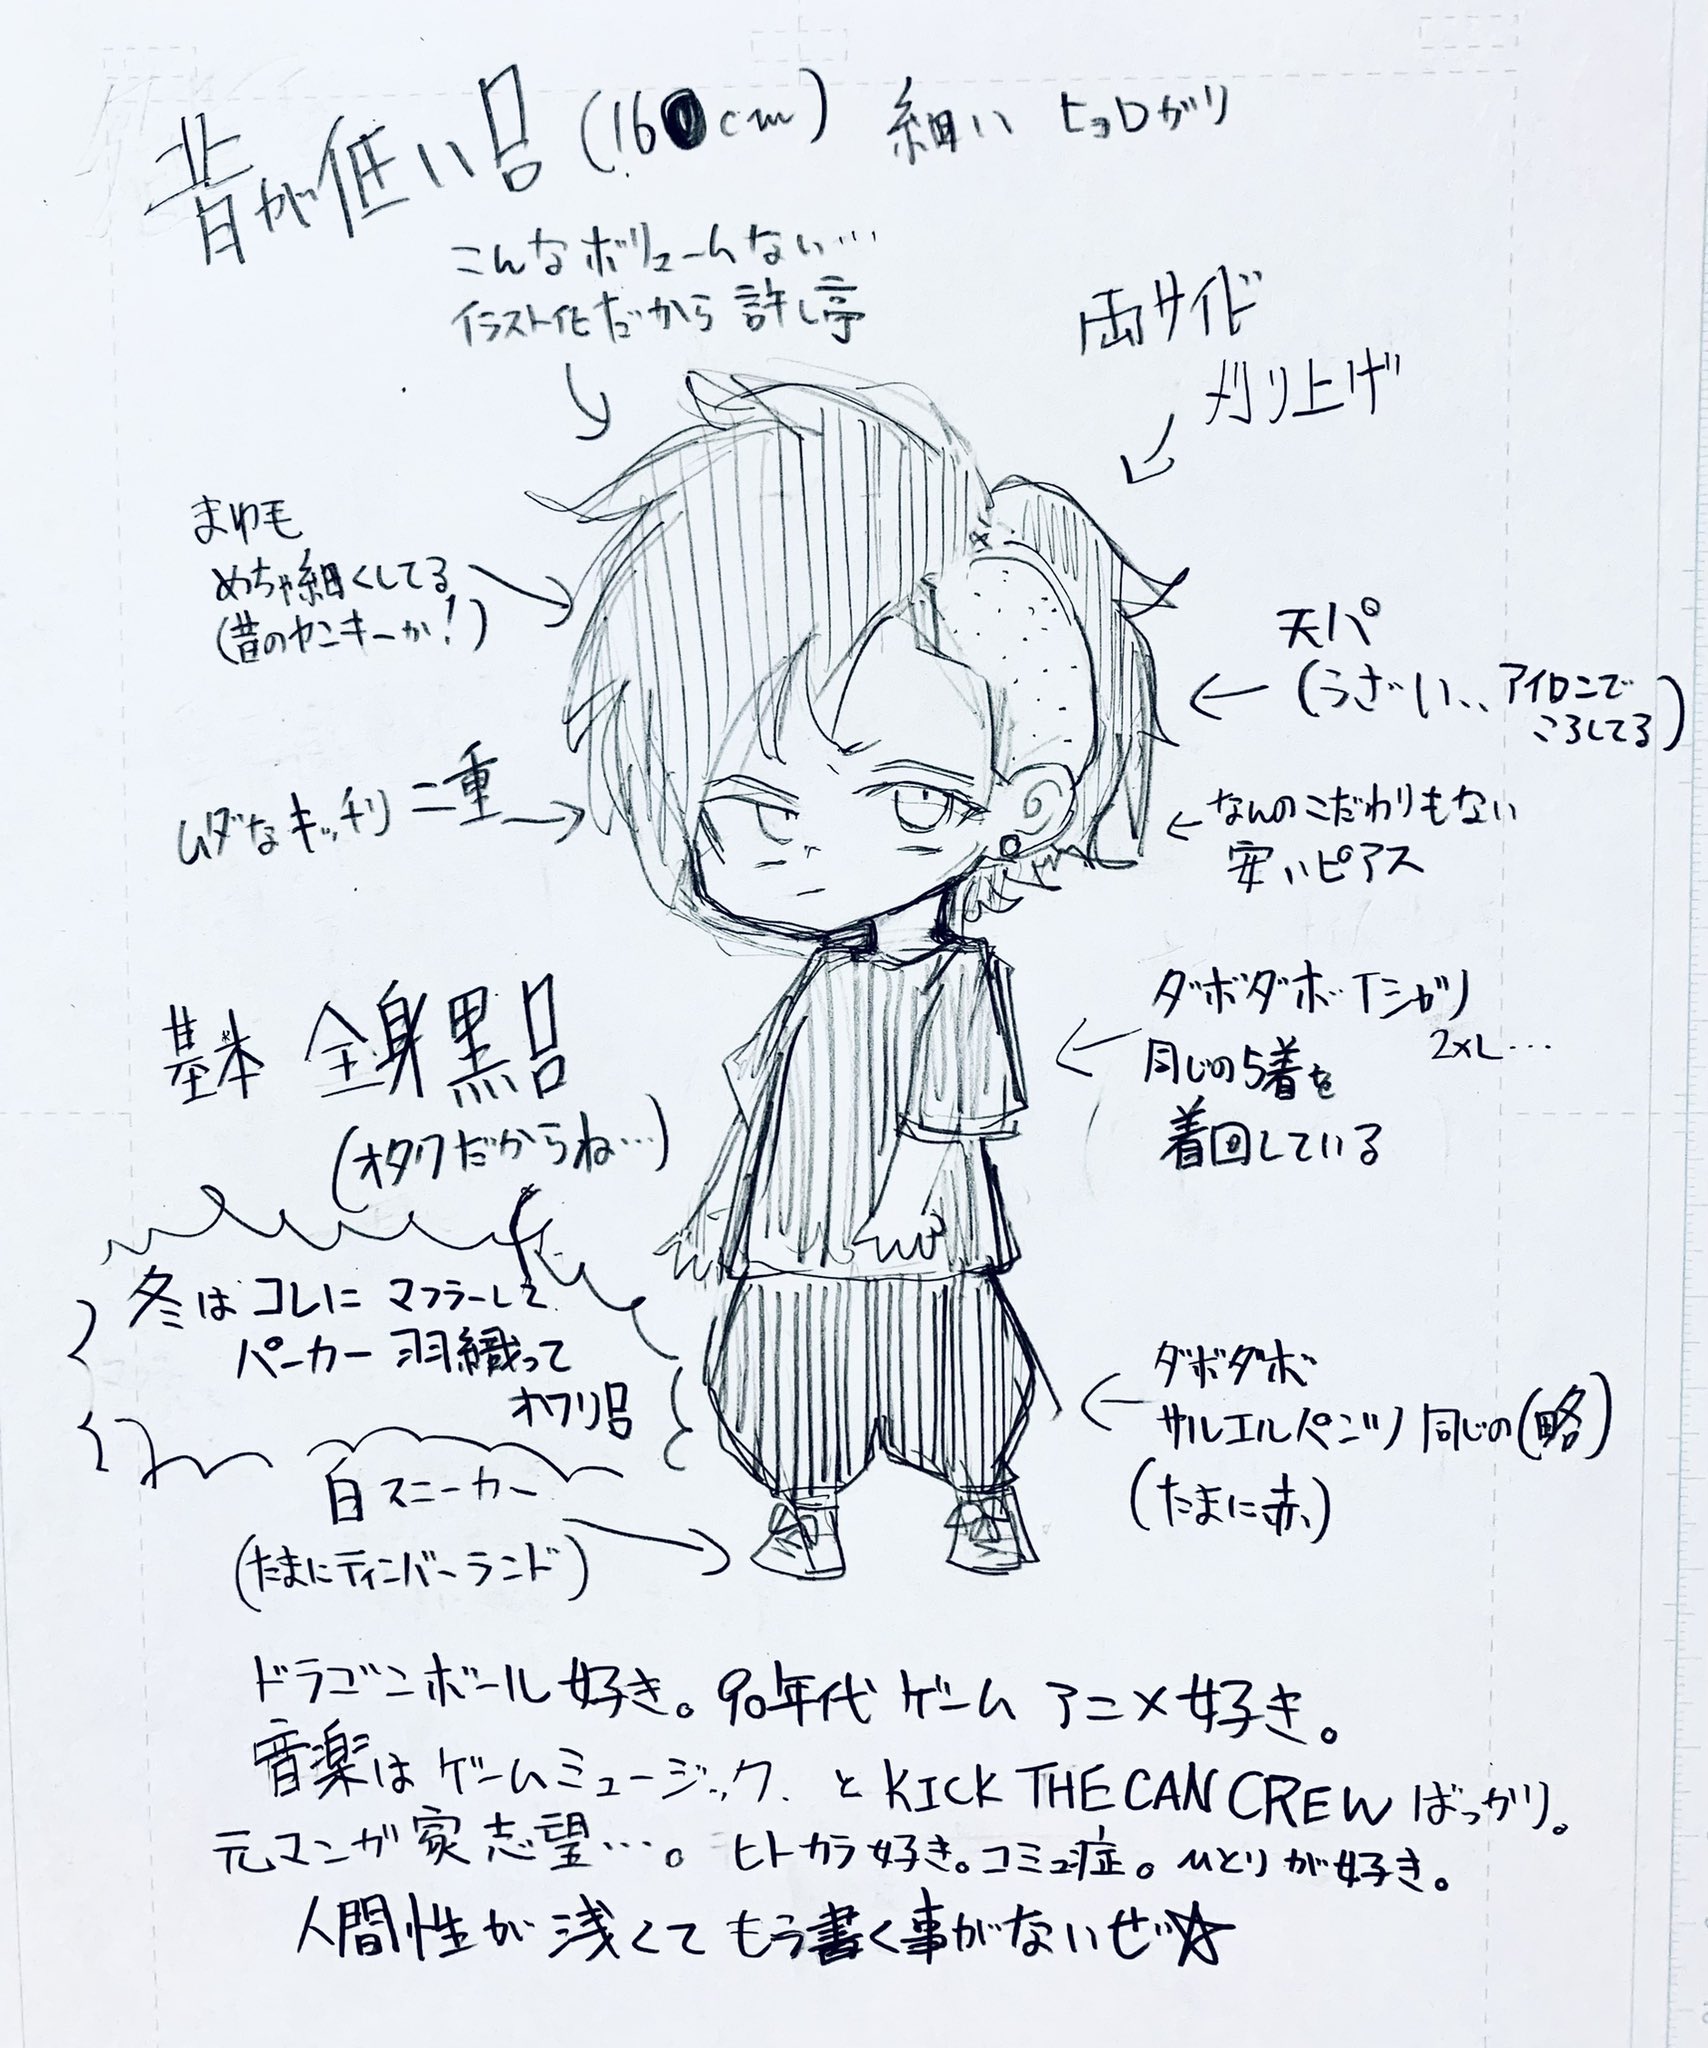 背が低い呂(160cm) 細い ヒョロガリ
こんなボリュームない…
イラスト化だから許し亭
両サイド
刈り上げ
まゆ毛
めちゃ細くしてる
(昔のヤンキーか!)
天パ
(うざい、、アイロンで
ころしてる)
ムダなキッチリ二重
なんのこだわりもない
安いピアス
基本 全身黒呂
(オタクだからね…)
ダボダボTシャツ
2XL…
同じの5着を
着回している
冬はコレにマフラーして
パーカー羽織って
オワリ呂
ダボダボ
サルエルパンツ 同じの(略)
(たまに赤)
白スニーカー
(たまにティンバーランド)
ドラゴンボール好き。90年代ゲーム アニメ好き。
音楽はゲームミュージック と KICK THE CAN CREW ばっかり。
元マンガ家志望…。ヒトカラ好き。コミュ症。ひとりが好き。
人間性が浅くてもう書く事がないぜ☆